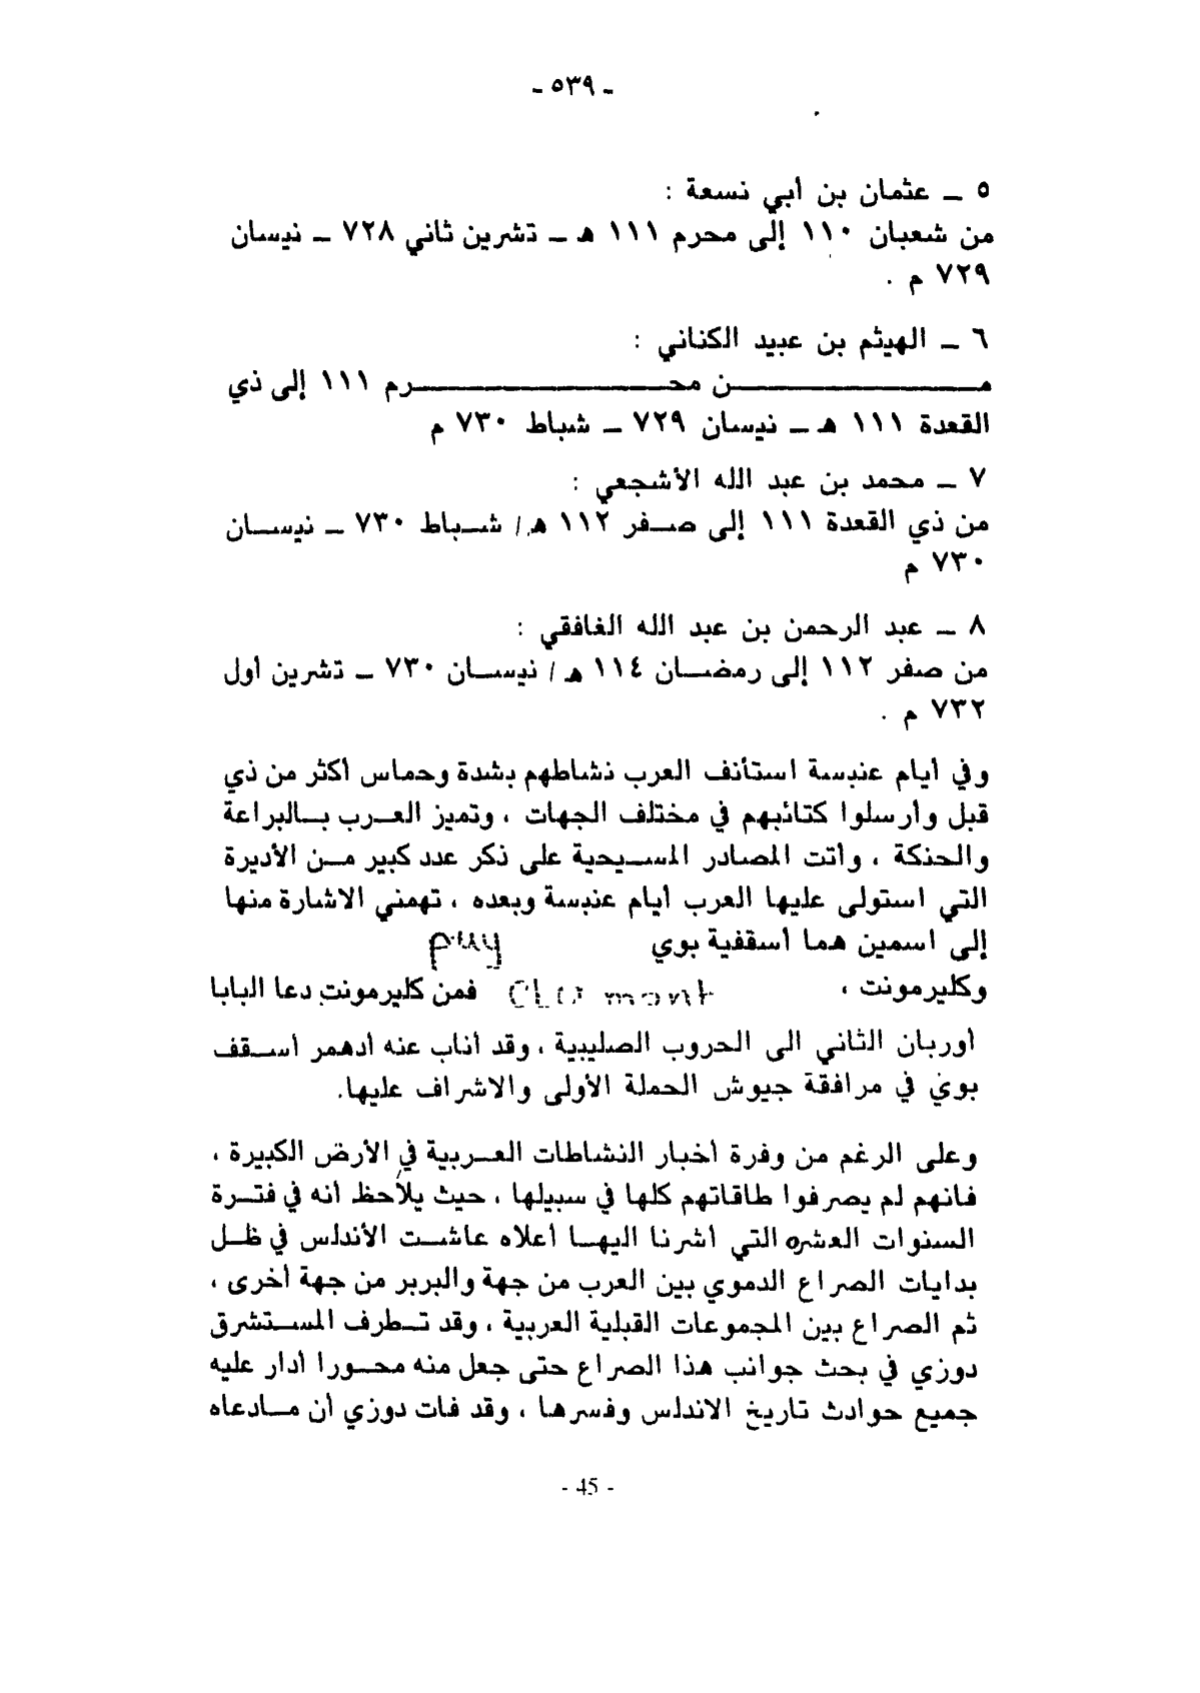 - ٥٣٩ -
٥ ــ عثمان بن أبي نسعة :
من شعبان ١١٠ إلى محرم ١١١ هـ ــ تشرين ثاني ٧٢٨ ــ نيسان
٧٢٩ م .
٦ ــ الهيثم بن عبيد الكناني :
مـــــن محـــــرم ١١١ إلى ذي
القعدة ١١١ هـ ــ نيسان ٧٢٩ ــ شباط ٧٣٠ م
٧ ــ محمد بن عبد الله الأشجعي :
من ذي القعدة ١١١ إلى صـفر ١١٢ هـ/ شـباط ٧٣٠ ــ نيسـان
٧٣٠ م
٨ ــ عبد الرحمن بن عبد الله الغافقي :
من صفر ١١٢ إلى رمضـان ١١٤ هـ/ نيسـان ٧٣٠ ــ تشرين أول
٧٣٢ م .
وفي أيام عنبسة استأنف العرب نشاطهم بشدة وحماس أكثر من ذي
قبل وأرسلوا كتائبهم في مختلف الجهات ، وتميز العـرب بـالبراعة
والحنكة ، وأتت المصادر المسـيحية على ذكر عدد كبير مـن الأديرة
التي استولى عليها العرب أيام عنبسة وبعده ، تهمني الاشارة منها
إلى اسمين هما أسقفية بوي puy
وكليرمونت ، فمن كليرمونت دعا البابا
أوربان الثاني الى الحروب الصليبية ، وقد أناب عنه أدهمر أسـقف
بوي في مرافقة جيوش الحملة الأولى والاشراف عليها.
وعلى الرغم من وفرة أخبار النشاطات العـربية في الأرض الكبيرة ،
فانهم لم يصرفوا طاقاتهم كلها في سبيلها ، حيث يلاحظ أنه في فتـرة
السنوات العشره التي أشرنا اليهـا أعلاه عاشـت الأندلس في ظـل
بدايات الصراع الدموي بين العرب من جهة والبربر من جهة أخرى ،
ثم الصراع بين المجموعات القبلية العربية ، وقد تـطرف المسـتشرق
دوزي في بحث جوانب هذا الصراع حتى جعل منه محـورا أدار عليه
جميع حوادث تاريخ الاندلس وفسرها ، وقد فات دوزي أن مـادعاه
- 45 -